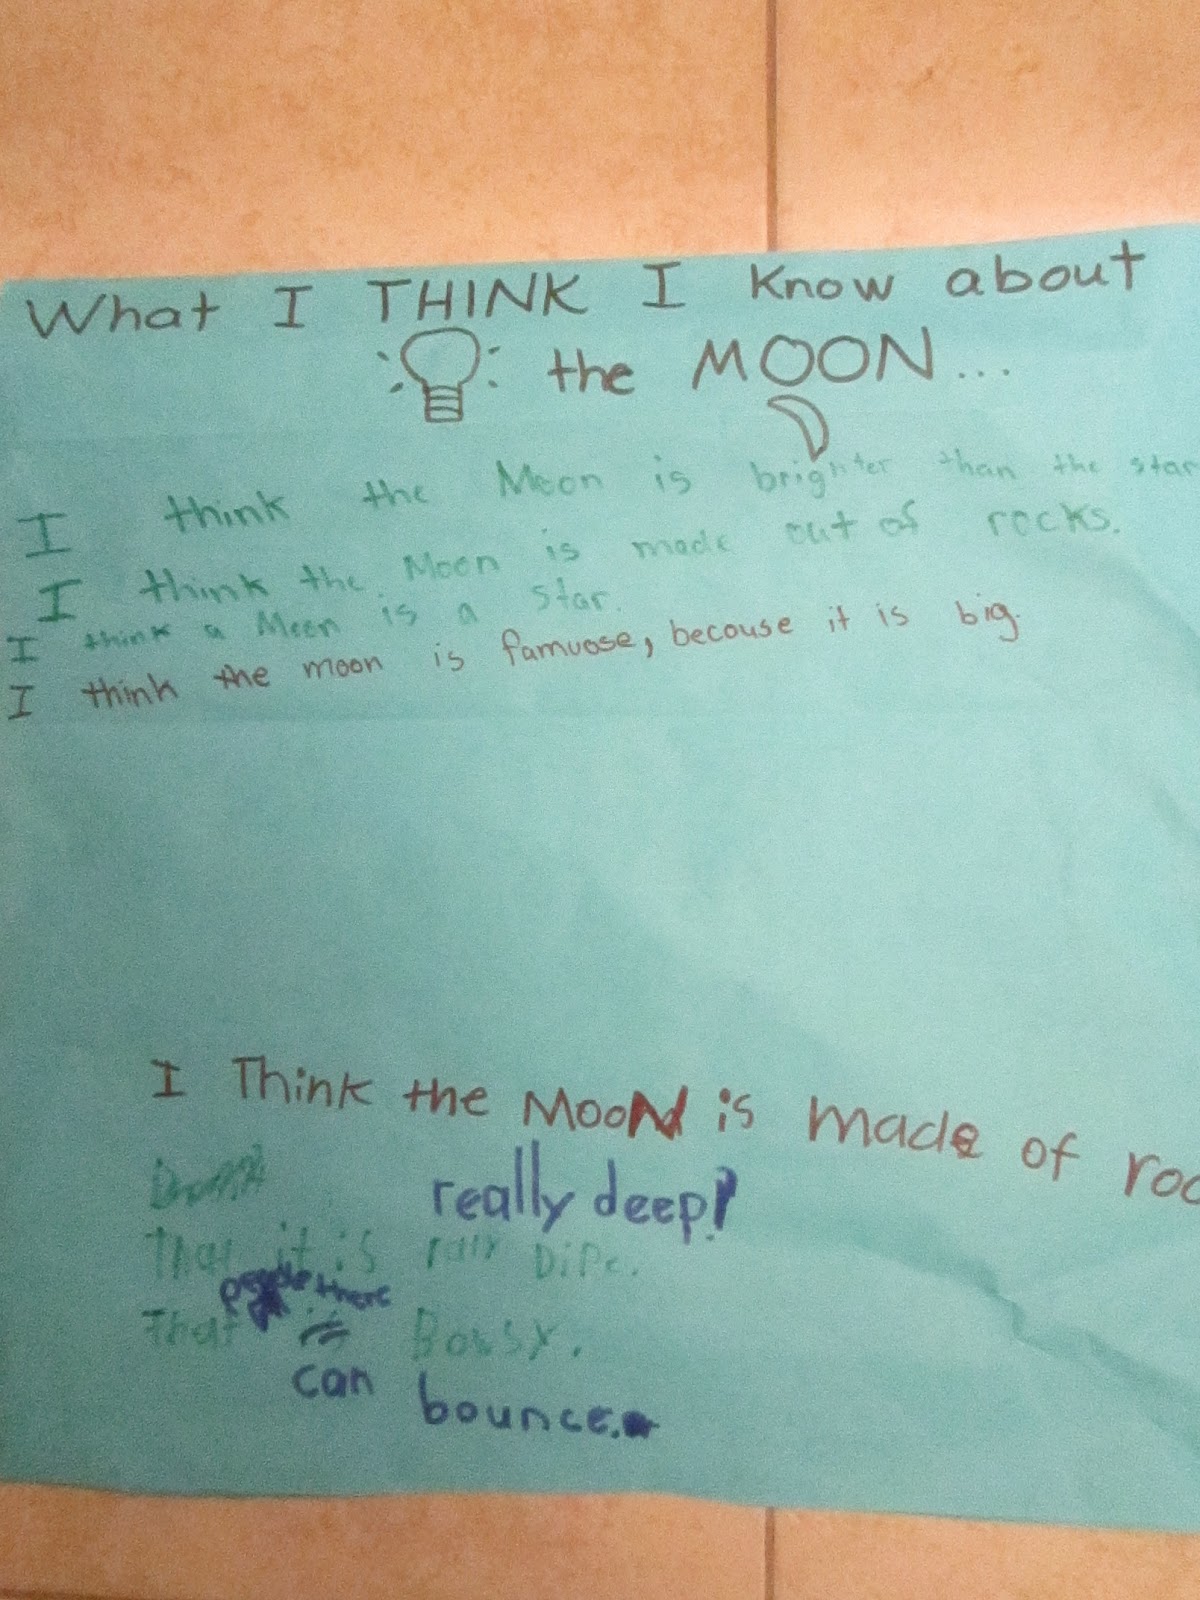 What I THINK I Know about
the MOON...
I think the Moon is brighter than the star
I think the Moon is made out of rocks.
I think a Moon is a star.
I think the moon is famuose, becouse it is big.
I Think the MOON is made of roc
really deep!
That it is Dipe.
people there
That Bousy.
can bounce.